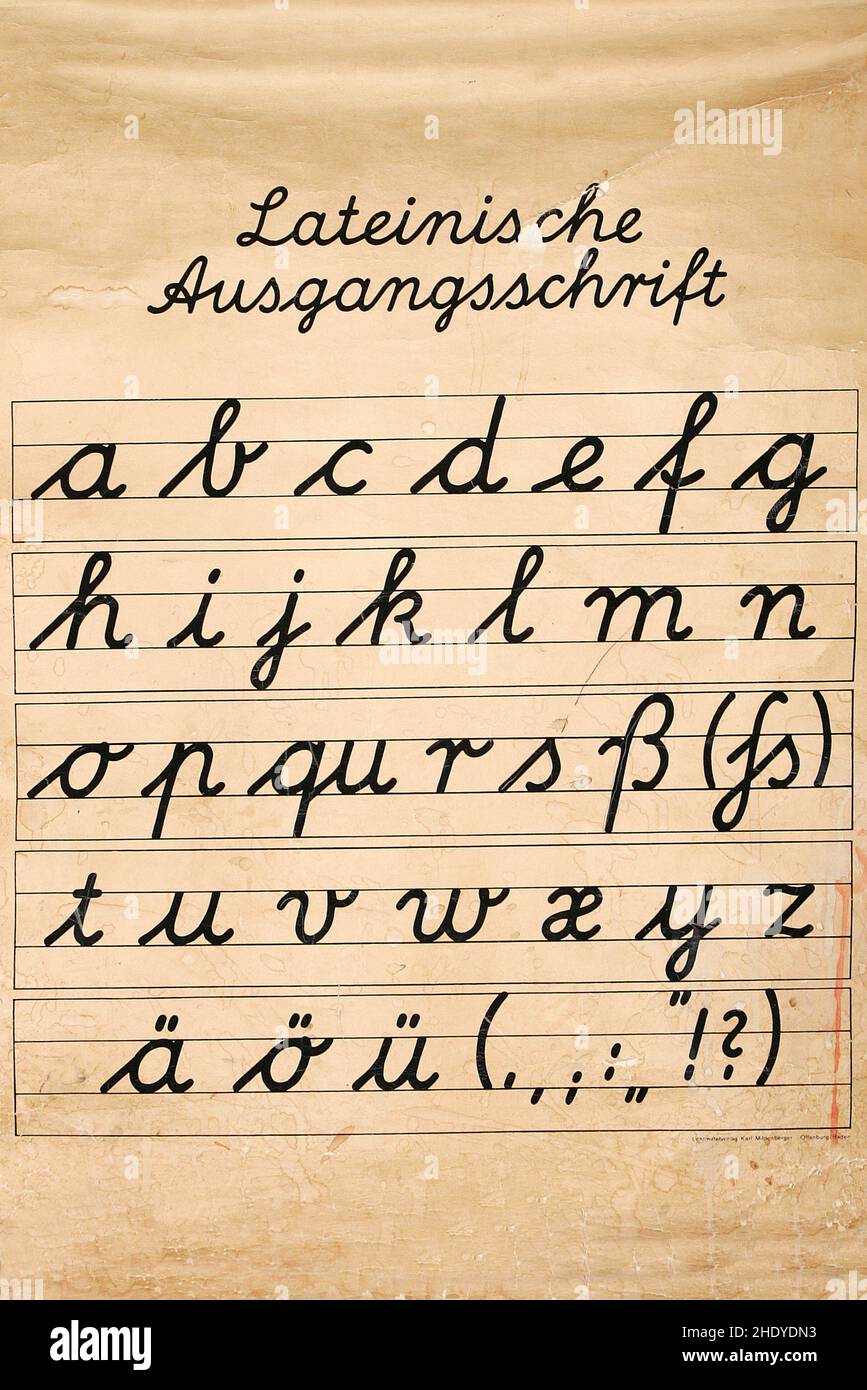 Lateinische
Ausgangsschrift
a b c d e f g
h i j k l m n
o p qu r s ß (ſs)
t u v w x y z
ä ö ü (. , ; : „ " ! ?)
Lehrmittelverlag Karl Mildenberger Offenburg/Baden
alamy
Image ID: 2HDYDN3
www.alamy.com